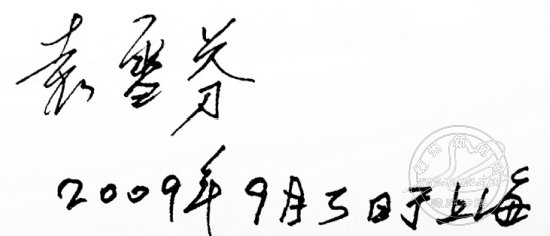 袁雪芬
2009年9月5日于上海